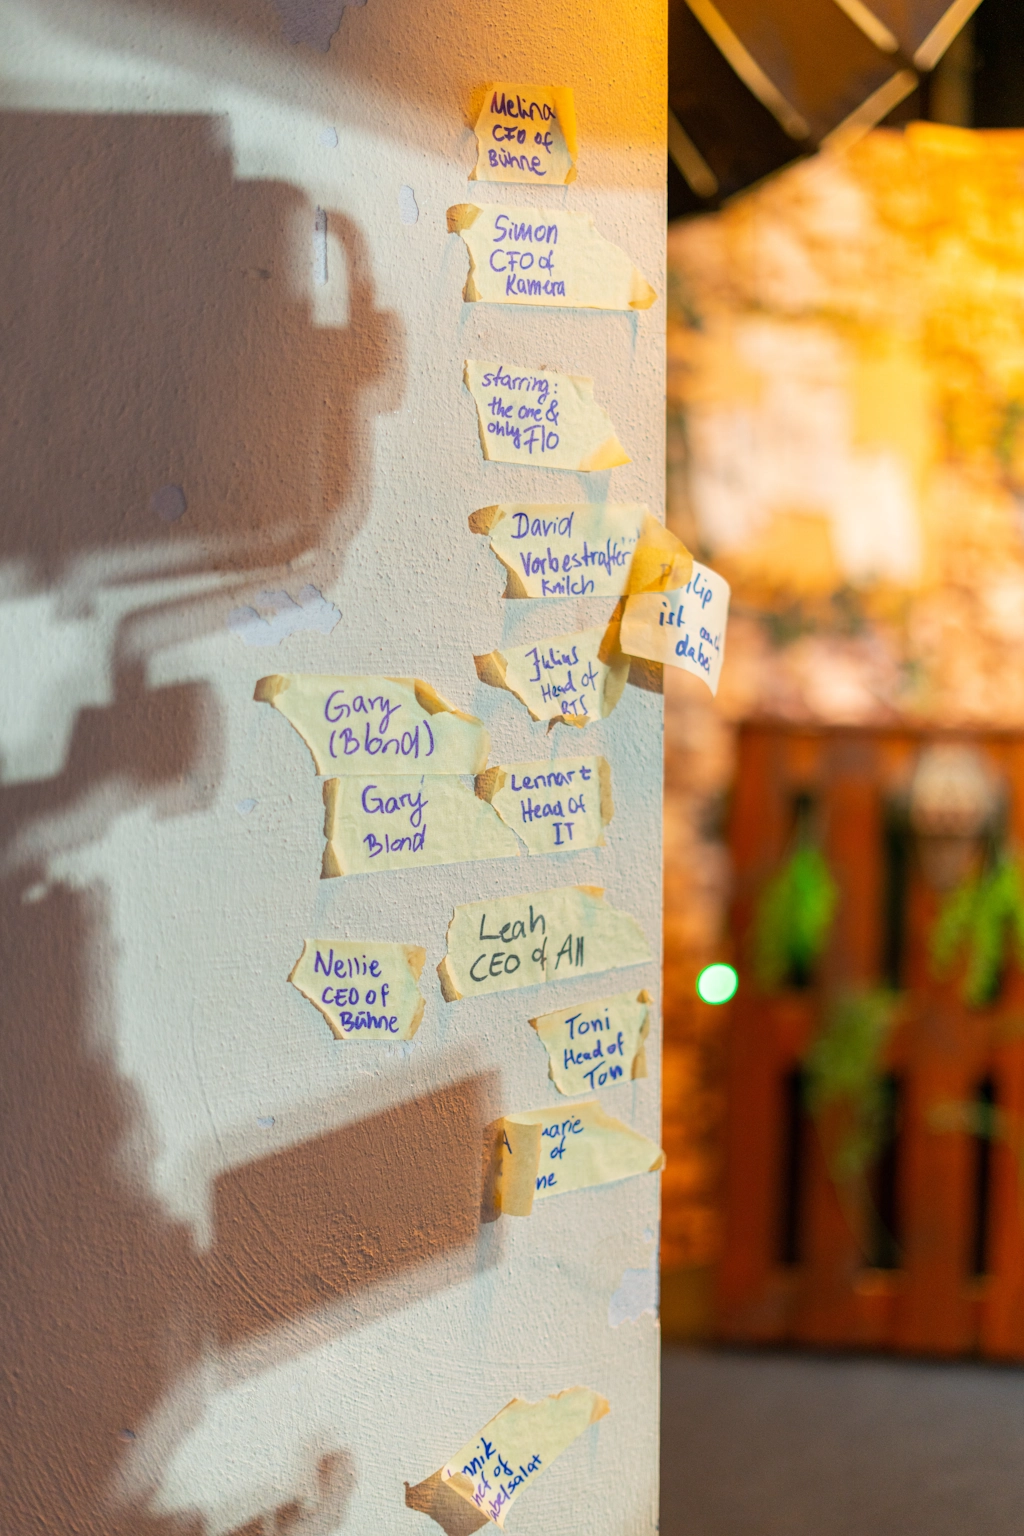 Melina
CFO of
Bühne
Simon
CFO of
Kamera
starring:
the one &
only Flo
David
Vorbestrafter
Knilch
ilip
ist auch
dabei
Julius
Head of
BTS
Gary
(Blond)
Gary
Blond
Lennart
Head of
IT
Leah
CEO of All
Nellie
CEO of
Bühne
Toni
Head of
Ton
A arie
of
ne
nnik
hef of
abelsalat